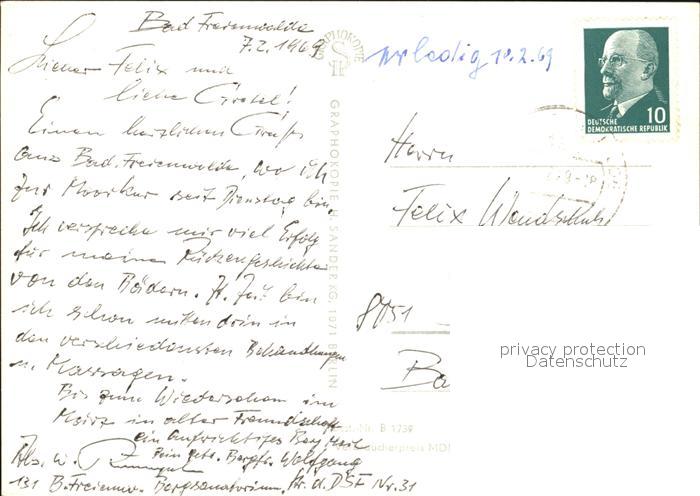 Bad Freienwalde
7.2.1969
Lieber Felix und
liebe Gretel!
Einen herzlichen Gruß
aus Bad Freienwalde, wo ich
zur Moorkur seit Dienstag bin.
Ich verspreche mir viel Erfolg
für meine Rückengeschichte
von den Bädern. Z. Zeit bin
ich schon mittendrin in
den verschiedensten Behandlungen
u. Massagen.
Bis zum Wiedersehen im
März in alter Freundschaft
ein aufrichtiges
Dein Bergfr. Wolfgang
Abs. W.
131 B. Freienw. Bergsanatorium, Str. d. DSF Nr. 31
GRAPHOKOPIE
GRAPHOKOPIE H. SANDER KG, 1971 BERLIN
erledigt 10.2.69
DEUTSCHE
DEMOKRATISCHE REPUBLIK
10
Herrn
Felix
8051
Ba
privacy protection
Datenschutz
Nr. B 1739
Verbraucherpreis MDN